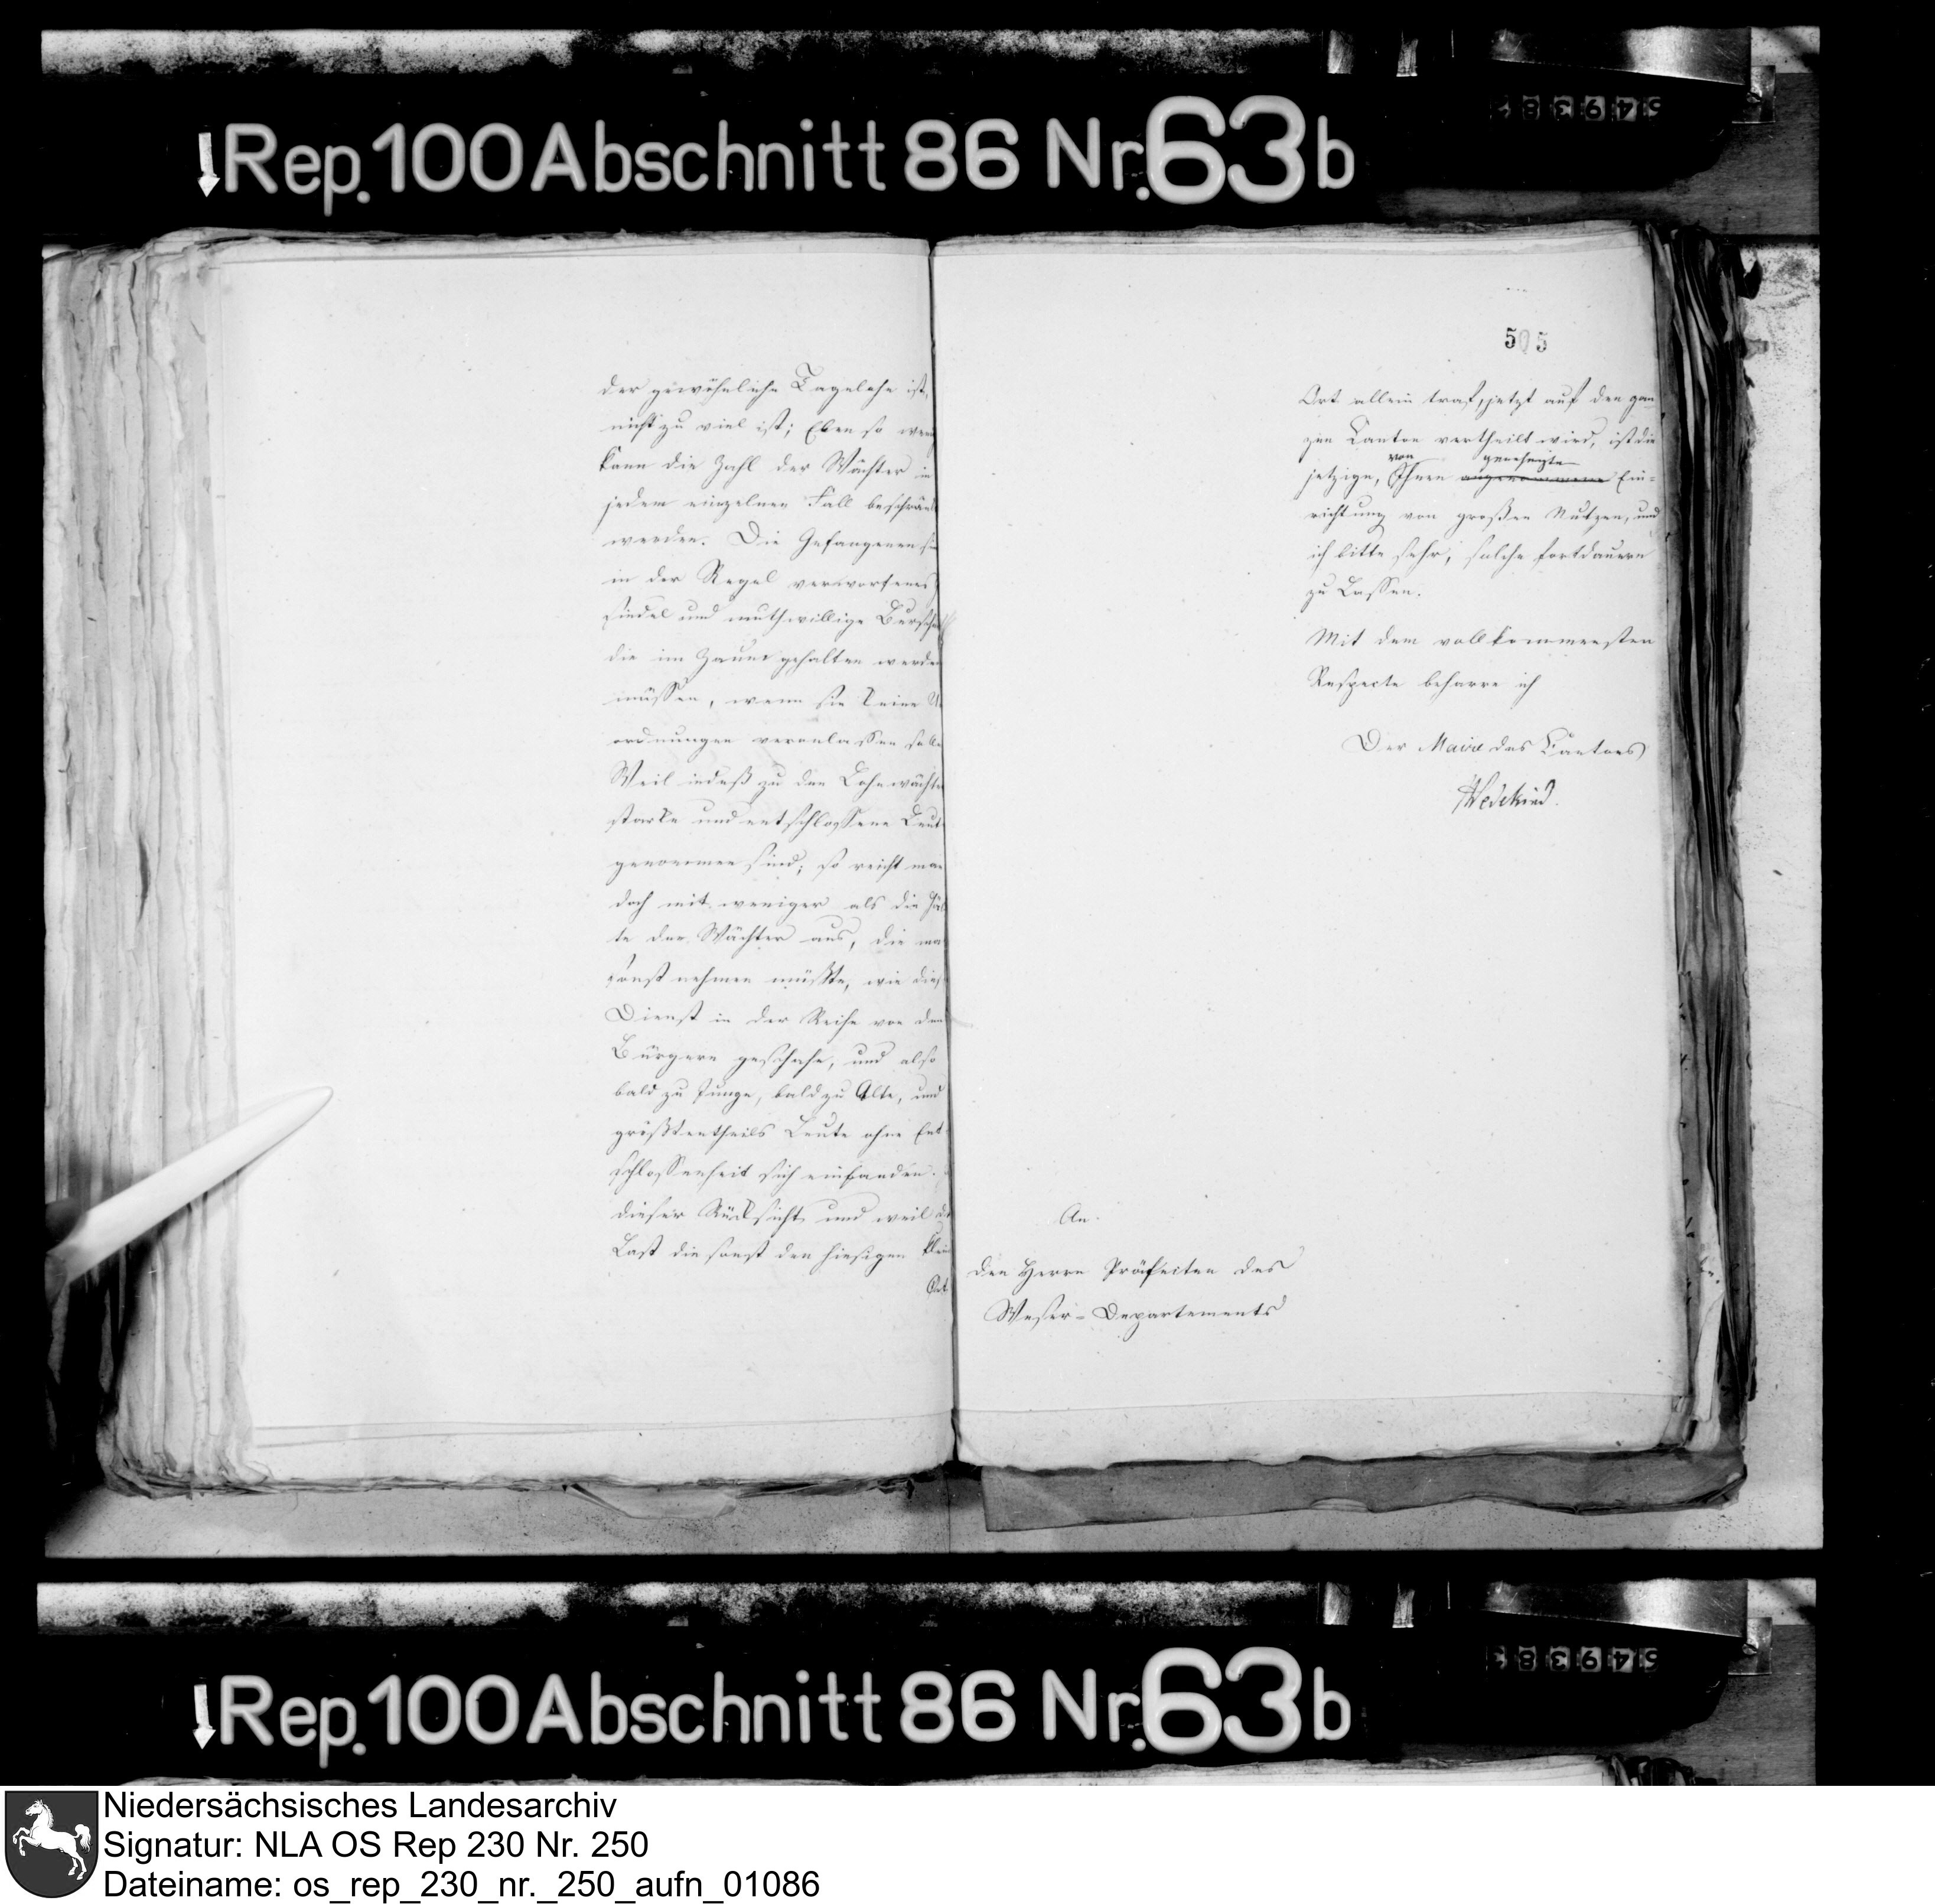 Rep. 100 Abschnitt 86 Nr. 63 b
der gewöhnliche Tagelohn ist,
nicht zu viel ist; Eben so wenig
kann die Zahl der Wächter in
jedem einzelnen Fall beschränkt
werden. Die Gefangenen
in der Regel verworfenes
sindel und muthwillige Bursche
die im Zaume gehalten werden
müssen, wenn sie keine Un
ordnungen veranlassen solle
Weil indeß zu den Lohnwächte
starke und entschlossene Leute
genommen sind; so reicht man
doch mit weniger als die Hälf
te der Wächter aus, die man
sonst nehmen müßte, wie dies
Dienst in der Reihe von den
Bürgern geschahe, und also
bald zu Junge, bald zu Alte, und
größtentheils Leute ohne Ent
schlossenheit sich einfanden.
dieser Rücksicht und weil die
Last die sonst den hiesigen klein
Ort
505
Ort allein traf, jetzt auf den gan
zen Canton vertheilt wird, ist die
von genehmigte
jetzige, Ihnen angenommene Ein=
richtung von großen Nutzen, und
ich bitte sehr, solche fortdauern
zu Lassen.
Mit dem vollkommensten
Respecte beharre ich
Der Maire des Cantons
Wedekind.
An.
den Herrn Präfecten des
Weser=Departements
Rep. 100 Abschnitt 86 Nr. 63 b
Niedersächsisches Landesarchiv
Signatur: NLA OS Rep 230 Nr. 250
Dateiname: os_rep_230_nr._250_aufn_01086